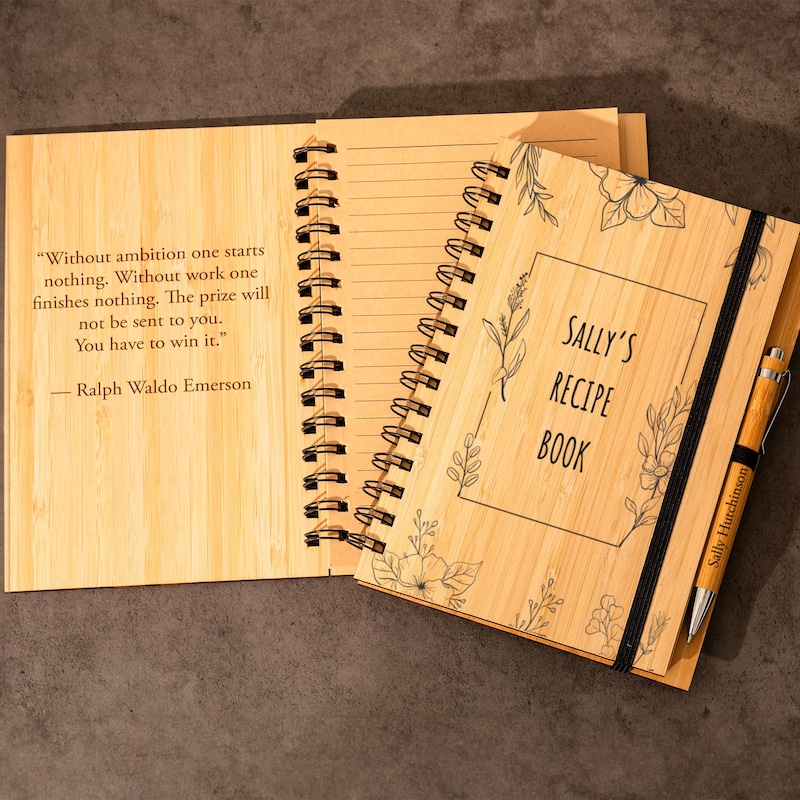 “Without ambition one starts
nothing. Without work one
finishes nothing. The prize will
not be sent to you.
You have to win it.”
— Ralph Waldo Emerson
SALLY’S
RECIPE
BOOK
Sally Hutchinson